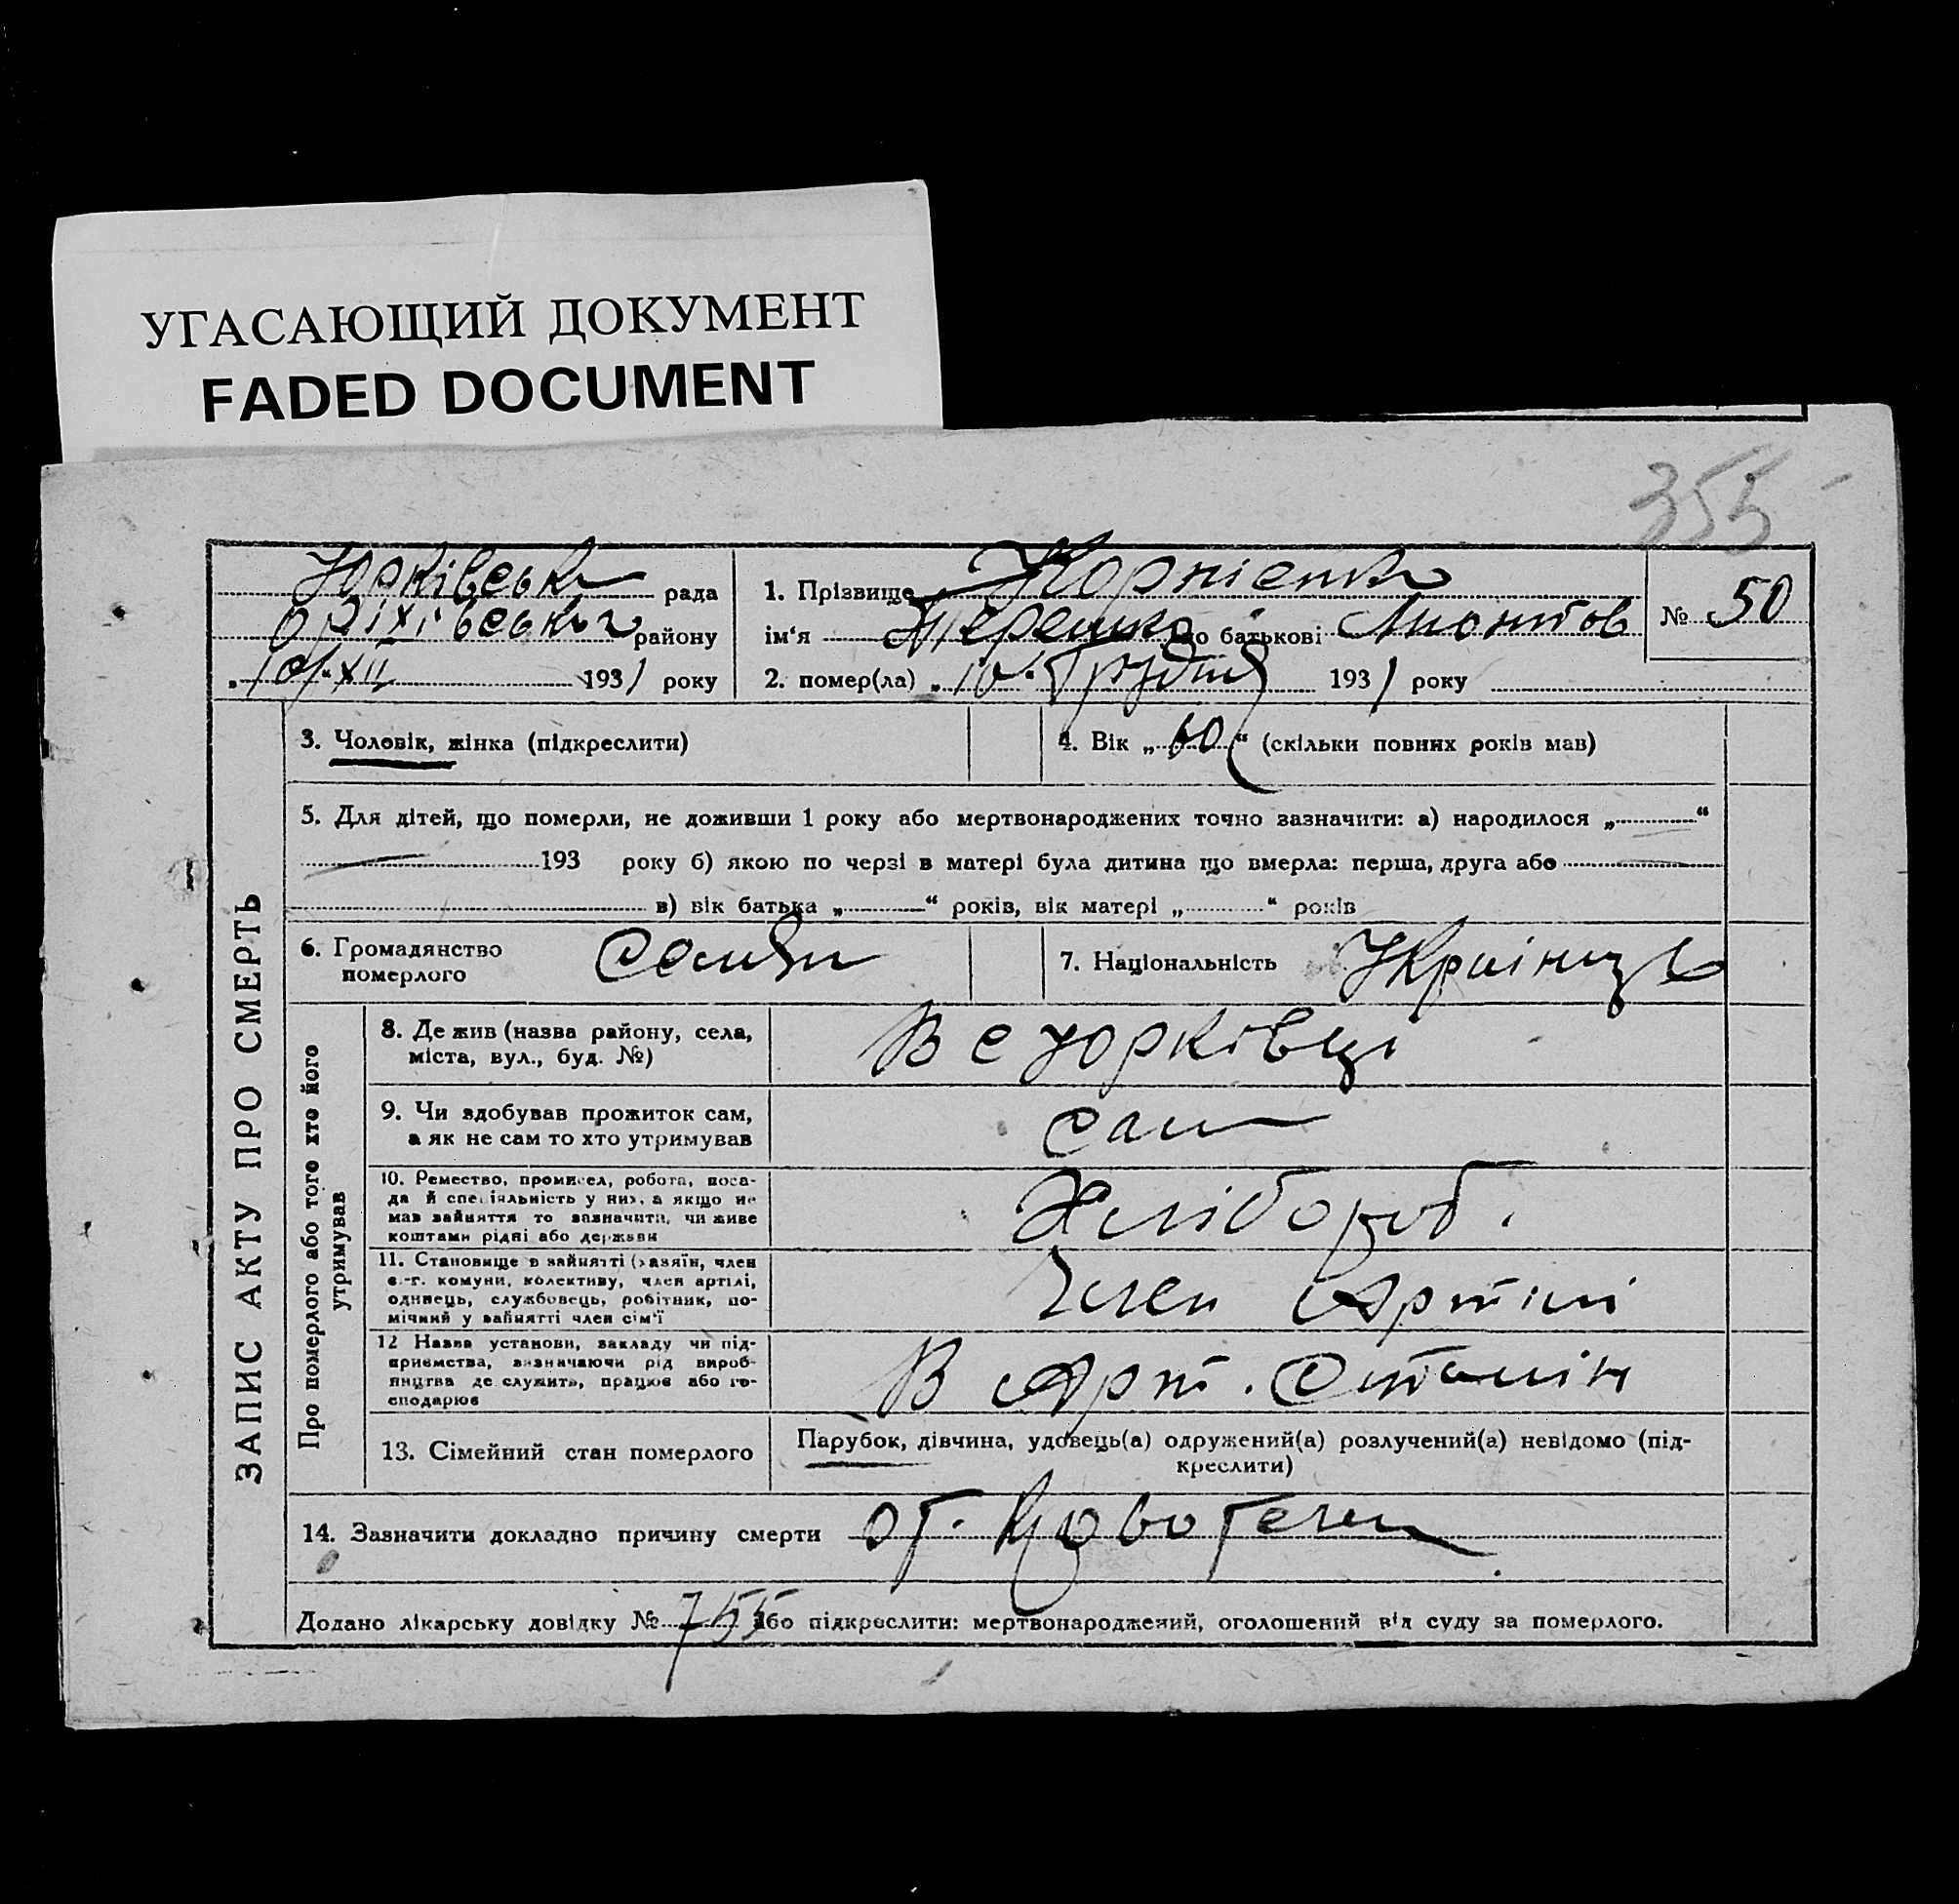 УГАСАЮЩИЙ ДОКУМЕНТ
FADED DOCUMENT
355
Юрківська рада
Оріхівського району
1931 року
1. Прізвище Корнієнко
ім‘я Терешко по батькові
2. помер(ла) „10“ Грудня 1931 року
№ 50
ЗАПИС АКТУ ПРО СМЕРТЬ
3. Чоловік, жінка (підкреслити)
4. Вік „60“ (скільки повних років мав)
5. Для дітей, що померли, не доживши 1 року або мертвонароджених точно зазначити: а) народилося „ “
193 року б) якою по черзі в матері була дитина що вмерла: перша, друга або
в) вік батька „ “ років, вік матері „ “ років
6. Громадянство
померлого
7. Національність Українць
Про померлого або того хто його
утримував
8. Де жив (назва району, села,
міста, вул., буд. №)
В с Юрківці
9. Чи здобував прожиток сам,
а як не сам то хто утримував
сам
10. Ремество, промисел, робота, поса-
да й спеціяльність у них, а якщо не
мав зайняття то зазначити, чи живе
коштами рідні або держави
Хлібороб.
11. Становище в зайнятті (хазяїн, член
с.-г. комуни, колективу, член артілі,
одинець, службовець, робітник, по-
мічний у зайнятті член сім‘ї
Член Артілі
12 Назва установи, закладу чи під-
приємства, зазначаючи рід вироб-
ництва де служить, працює або го-
сподарює
В Арт. Сталін
13. Сімейний стан померлого
Парубок, дівчина, удовець(а) одружений(а) розлучений(а) невідомо (під-
креслити)
14. Зазначити докладно причину смерти
Додано лікарську довідку № 755 або підкреслити: мертвонароджений, оголошений від суду за померлого.